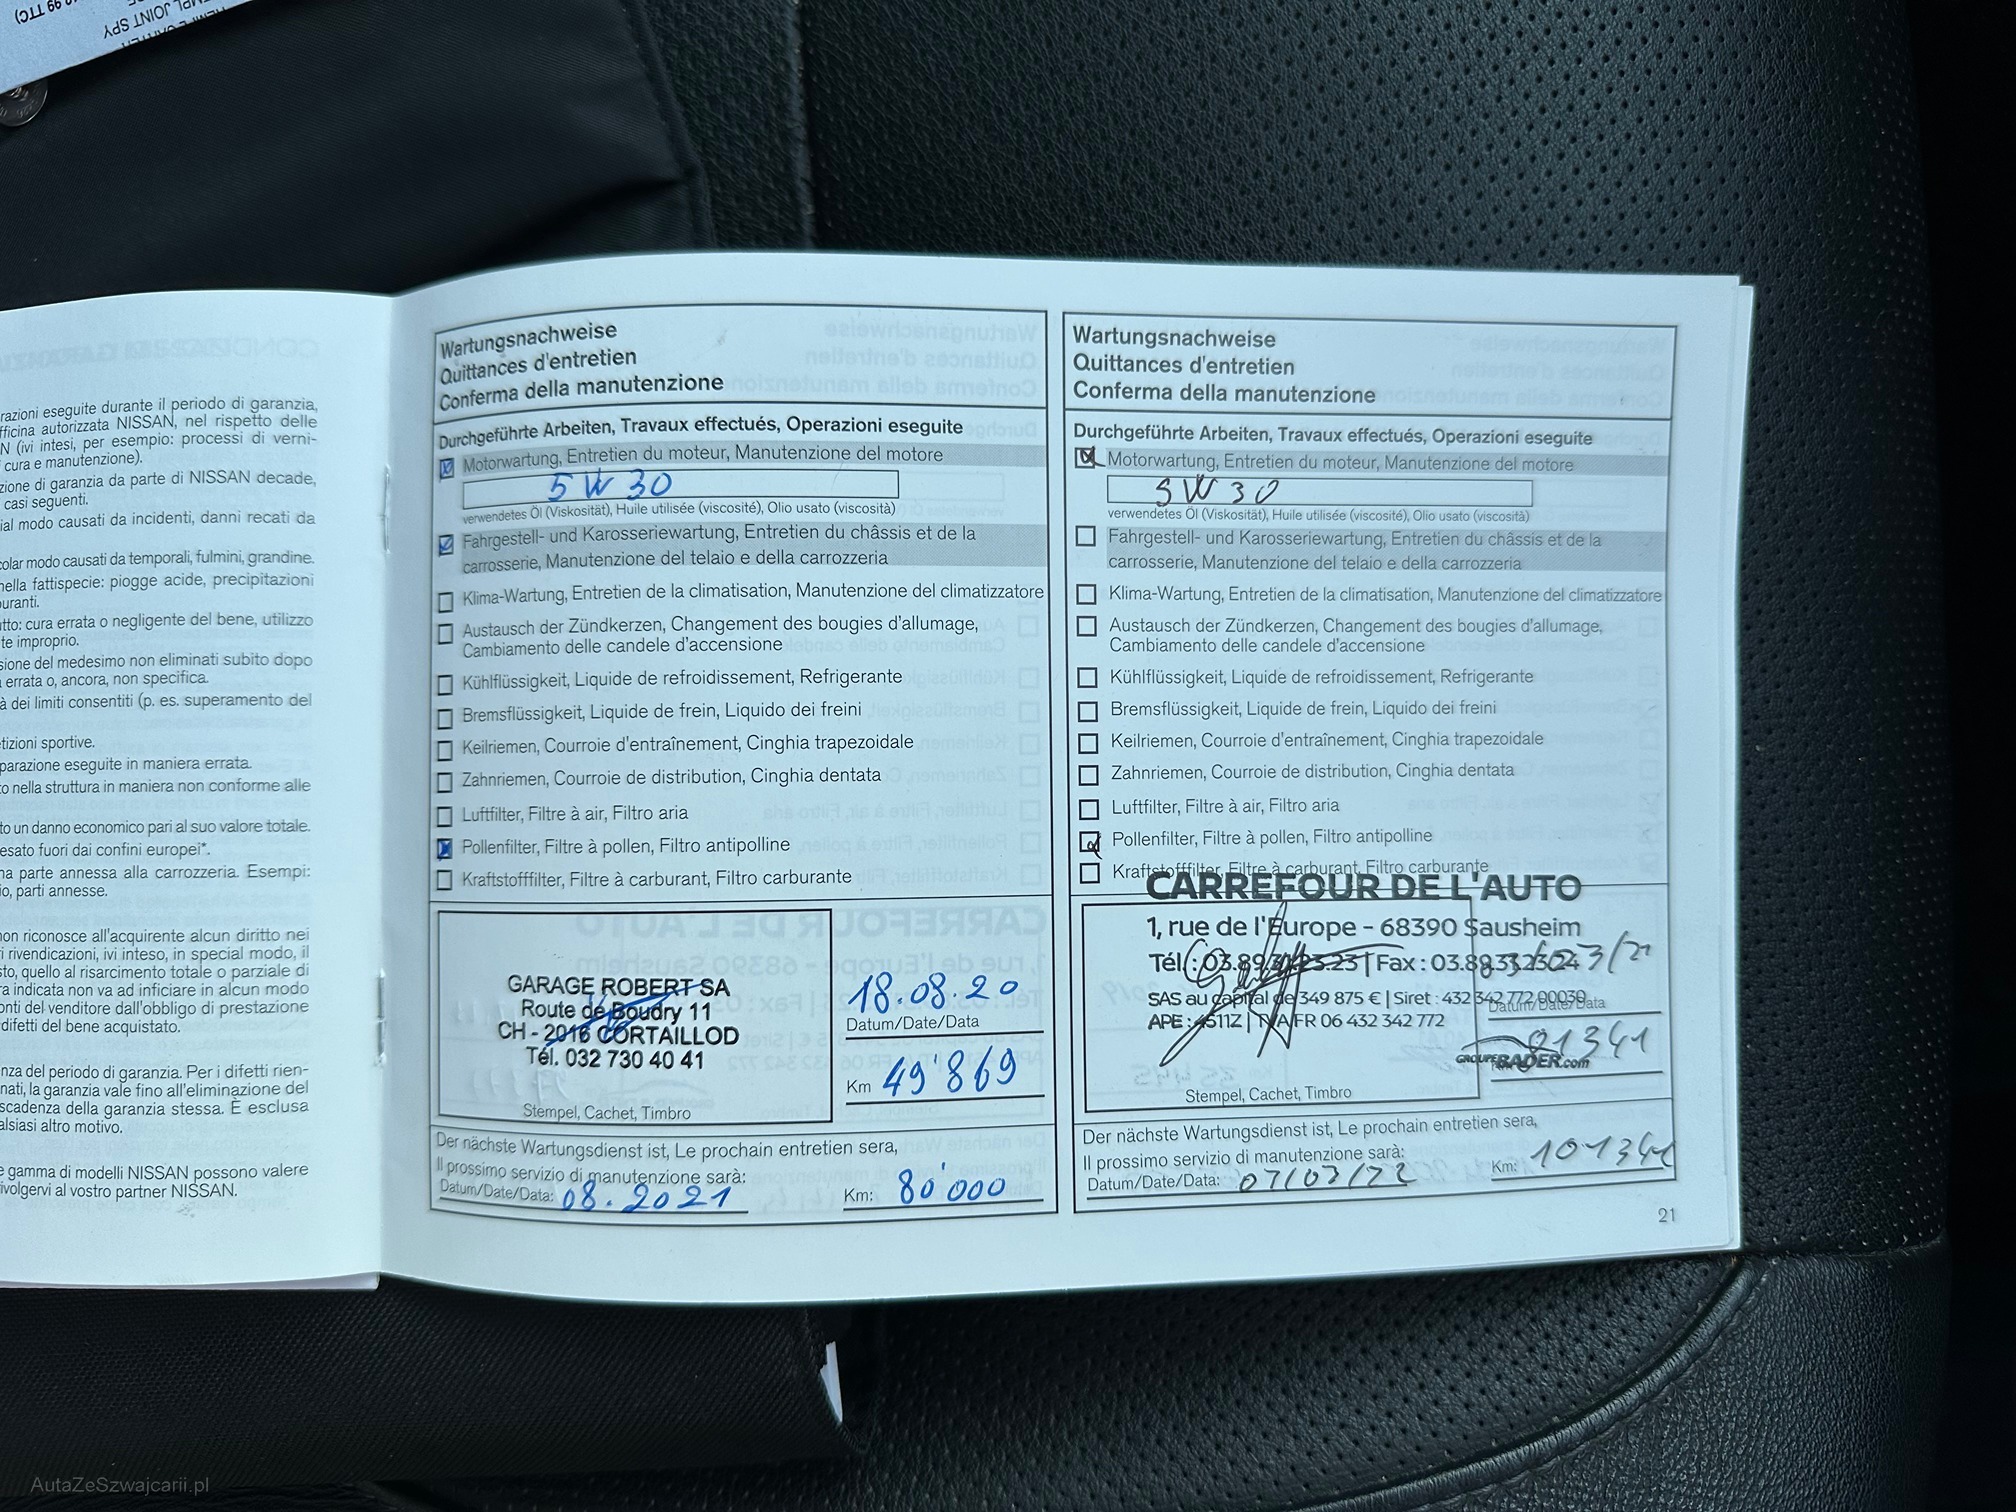 TEMPL JOINT SPY
razioni eseguite durante il periodo di garanzia,
fficina autorizzata NISSAN, nel rispetto delle
N (ivi intesi, per esempio: processi di verni-
cura e manutenzione).
zione di garanzia da parte di NISSAN decade,
casi seguenti.
ial modo causati da incidenti, danni recati da
colar modo causati da temporali, fulmini, grandine.
nella fattispecie: piogge acide, precipitazioni
buranti.
utto: cura errata o negligente del bene, utilizzo
te improprio.
sione del medesimo non eliminati subito dopo
errata o, ancora, non specifica.
à dei limiti consentiti (p. es. superamento del
tizioni sportive.
parazione eseguite in maniera errata.
to nella struttura in maniera non conforme alle
to un danno economico pari al suo valore totale.
esato fuori dai confini europei*.
na parte annessa alla carrozzeria. Esempi:
io, parti annesse.
non riconosce all'acquirente alcun diritto nei
i rivendicazioni, ivi inteso, in special modo, il
sto, quello al risarcimento totale o parziale di
ra indicata non va ad inficiare in alcun modo
onti del venditore dall'obbligo di prestazione
difetti del bene acquistato.
nza del periodo di garanzia. Per i difetti rien-
nati, la garanzia vale fino all'eliminazione del
scadenza della garanzia stessa. È esclusa
alsiasi altro motivo.
e gamma di modelli NISSAN possono valere
ivolgervi al vostro partner NISSAN.
Wartungsnachweise
Quittances d'entretien
Conferma della manutenzione
Durchgeführte Arbeiten, Travaux effectués, Operazioni eseguite
Motorwartung, Entretien du moteur, Manutenzione del motore
5 W 30
verwendetes Öl (Viskosität), Huile utilisée (viscosité), Olio usato (viscosità)
Fahrgestell- und Karosseriewartung, Entretien du châssis et de la
carrosserie, Manutenzione del telaio e della carrozzeria
Klima-Wartung, Entretien de la climatisation, Manutenzione del climatizzatore
Austausch der Zündkerzen, Changement des bougies d'allumage,
Cambiamento delle candele d'accensione
Kühlflüssigkeit, Liquide de refroidissement, Refrigerante
Bremsflüssigkeit, Liquide de frein, Liquido dei freini
Keilriemen, Courroie d'entraînement, Cinghia trapezoidale
Zahnriemen, Courroie de distribution, Cinghia dentata
Luftfilter, Filtre à air, Filtro aria
Pollenfilter, Filtre à pollen, Filtro antipolline
Kraftstofffilter, Filtre à carburant, Filtro carburante
GARAGE ROBERT SA
Route de Boudry 11
CH - 2016 CORTAILLOD
Tél. 032 730 40 41
Stempel, Cachet, Timbro
18.08.20
Datum/Date/Data
Km 49'869
Der nächste Wartungsdienst ist, Le prochain entretien sera,
Il prossimo servizio di manutenzione sarà:
Datum/Date/Data: 08.2021 Km: 80'000
Wartungsnachweise
Quittances d'entretien
Conferma della manutenzione
Durchgeführte Arbeiten, Travaux effectués, Operazioni eseguite
Motorwartung, Entretien du moteur, Manutenzione del motore
5 W 30
verwendetes Öl (Viskosität), Huile utilisée (viscosité), Olio usato (viscosità)
Fahrgestell- und Karosseriewartung, Entretien du châssis et de la
carrosserie, Manutenzione del telaio e della carrozzeria
Klima-Wartung, Entretien de la climatisation, Manutenzione del climatizzatore
Austausch der Zündkerzen, Changement des bougies d'allumage,
Cambiamento delle candele d'accensione
Kühlflüssigkeit, Liquide de refroidissement, Refrigerante
Bremsflüssigkeit, Liquide de frein, Liquido dei freini
Keilriemen, Courroie d'entraînement, Cinghia trapezoidale
Zahnriemen, Courroie de distribution, Cinghia dentata
Luftfilter, Filtre à air, Filtro aria
Pollenfilter, Filtre à pollen, Filtro antipolline
Kraftstofffilter, Filtre à carburant, Filtro carburante
CARREFOUR DE L'AUTO
1, rue de l'Europe - 68390 Sausheim
Tél. : 03.89.31.23.23 | Fax : 03.89.31.23.24
SAS au capital de 349 875 € | Siret : 432 342 772 00039
Datum/Date/Data
APE : 4511Z | TVA FR 06 432 342 772
GROUPE RADER.com
Stempel, Cachet, Timbro
Der nächste Wartungsdienst ist, Le prochain entretien sera,
Il prossimo servizio di manutenzione sarà:
Datum/Date/Data: 07/03/22 Km: 101341
21
AutaZeSzwajcarii.pl